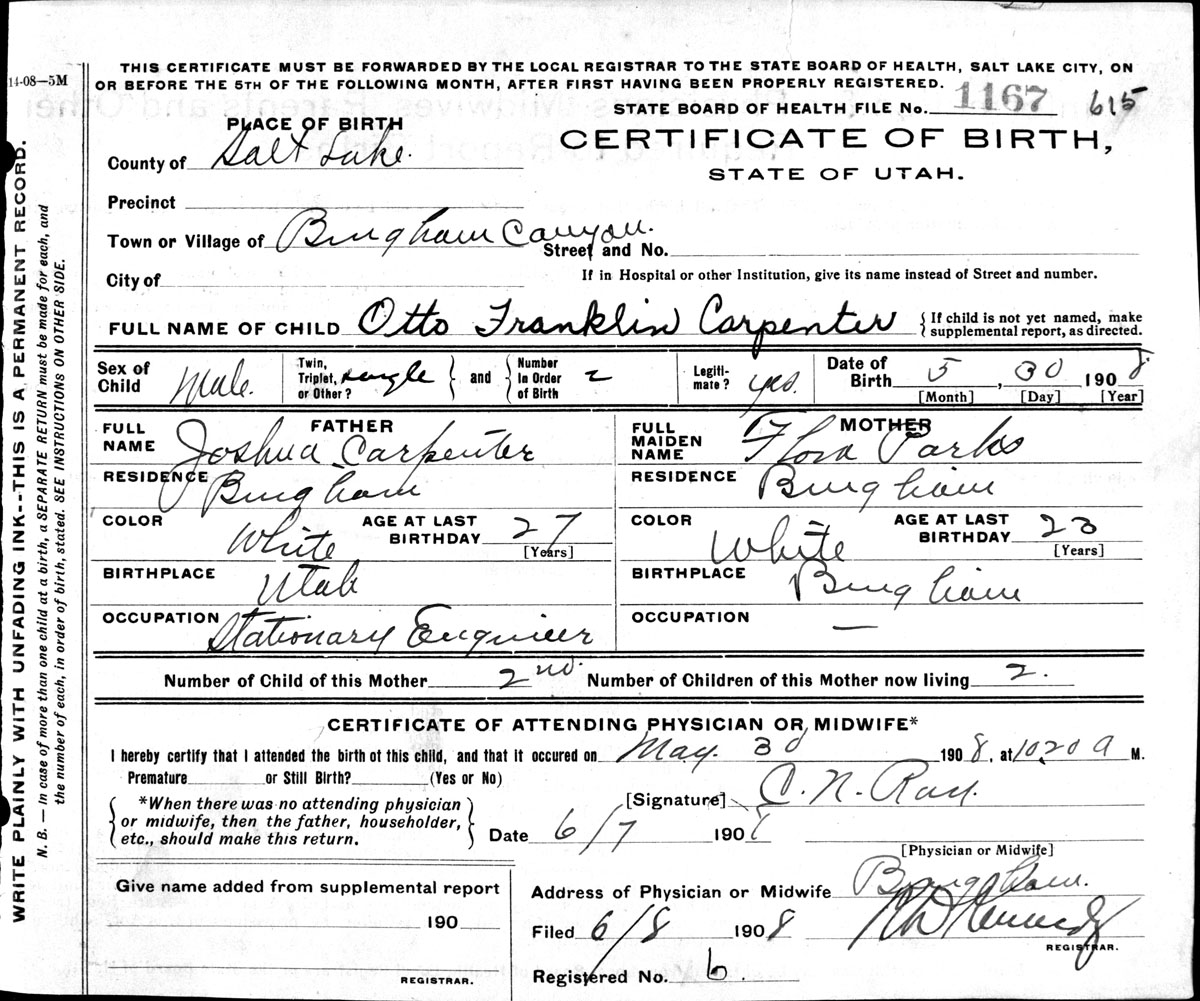 14-08—5M
THIS CERTIFICATE MUST BE FORWARDED BY THE LOCAL REGISTRAR TO THE STATE BOARD OF HEALTH, SALT LAKE CITY, ON
OR BEFORE THE 5TH OF THE FOLLOWING MONTH, AFTER FIRST HAVING BEEN PROPERLY REGISTERED.
STATE BOARD OF HEALTH FILE No. 1167 615
PLACE OF BIRTH
CERTIFICATE OF BIRTH,
STATE OF UTAH.
County of Salt Lake.
Precinct
Town or Village of Bingham Canyon.
Street and No.
City of
If in Hospital or other Institution, give its name instead of Street and number.
FULL NAME OF CHILD Otto Franklin Carpenter
{If child is not yet named, make
supplemental report, as directed.
Sex of Child Male.
Twin, Triplet, or Other? single } and { Number in Order of Birth 2
Legiti-mate? yes.
Date of Birth 5, 30 1908
[Month] [Day] [Year]
FATHER
FULL NAME Joshua Carpenter
RESIDENCE Bingham
COLOR White AGE AT LAST BIRTHDAY 27
[Years]
BIRTHPLACE Utah
OCCUPATION Stationary Engineer
MOTHER
FULL MAIDEN NAME Flora Parks
RESIDENCE Bingham
COLOR White AGE AT LAST BIRTHDAY 23
[Years]
BIRTHPLACE Bingham
OCCUPATION —
Number of Child of this Mother 2nd. Number of Children of this Mother now living 2.
CERTIFICATE OF ATTENDING PHYSICIAN OR MIDWIFE*
I hereby certify that I attended the birth of this child, and that it occured on May. 30 1908, at 10.20 a M.
Premature or Still Birth? (Yes or No)
*When there was no attending physician
or midwife, then the father, householder,
etc., should make this return.
[Signature] C. N. Ray.
Date 6/7 190
[Physician or Midwife]
Give name added from supplemental report
190
REGISTRAR.
Address of Physician or Midwife Bingham.
Filed 6/8 1908 Kennedy
REGISTRAR.
Registered No. 6.
WRITE PLAINLY WITH UNFADING INK--THIS IS A PERMANENT RECORD.
N. B. — In case of more than one child at a birth, a SEPARATE RETURN must be made for each, and
the number of each, in order of birth, stated. SEE INSTRUCTIONS ON OTHER SIDE.